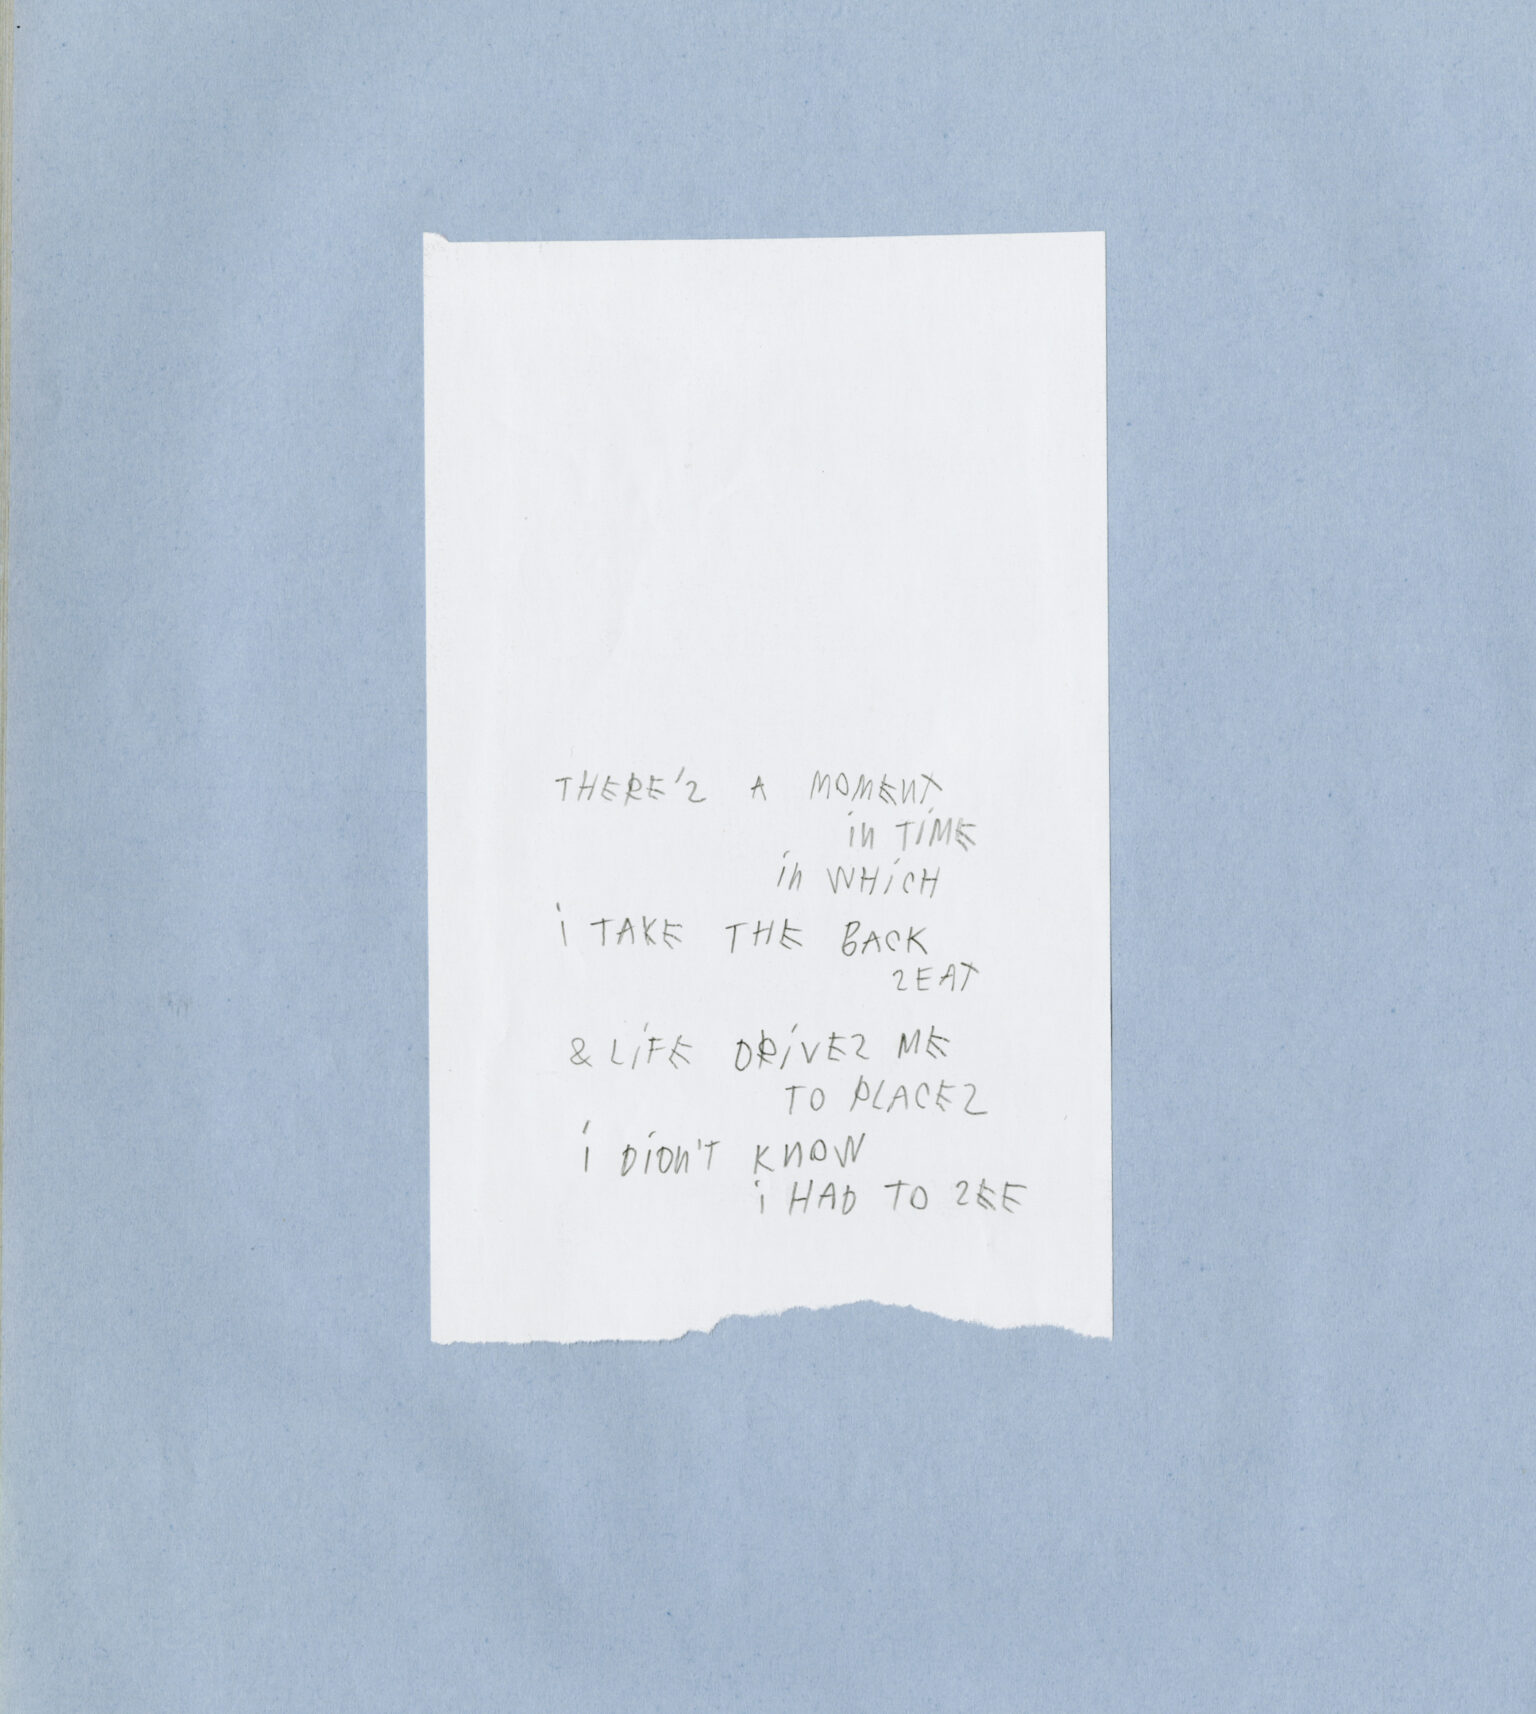 THERE'2 A MOMENT
in TiME
in WHiCH
i TAKE THE BACK
2EAT
& LiFE DRiVE2 ME
TO PLACE2
i DiDn'T KNOW
i HAD TO 2EE